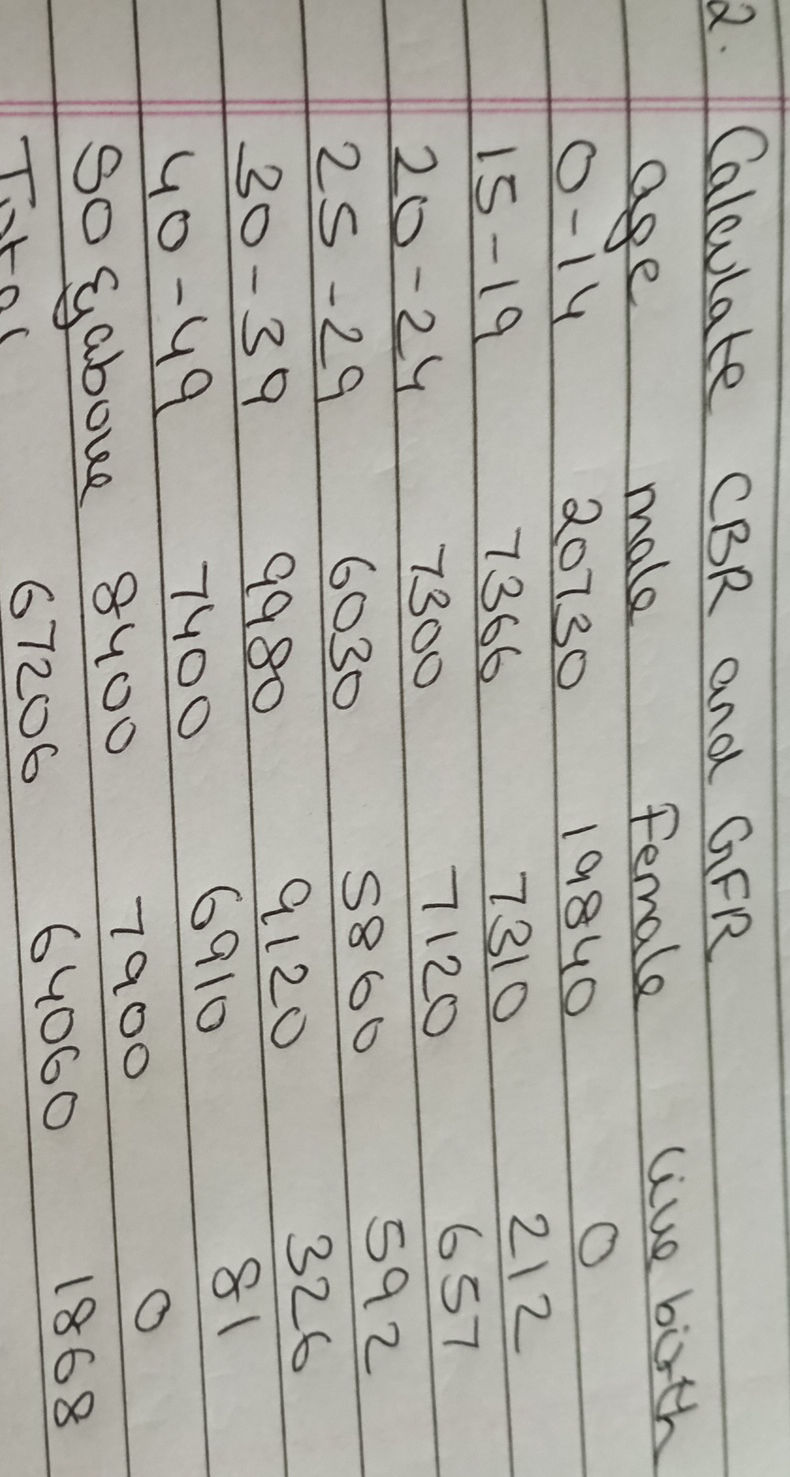 2. Calculate CBR and GFR
age male female live birth
0-14 20730 19840 0
15-19 7366 7310 212
20-24 7300 7120 657
25-29 6030 5860 592
30-39 9980 9120 326
40-49 7400 6910 81
50 & above 8400 7900 0
Total 67206 64060 1868